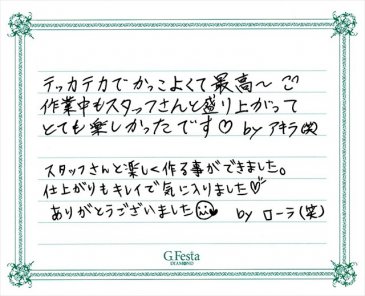 テッカテカでかっこよくて最高〜
作業中もスタッフさんと盛り上がって
とても楽しかったです♡ by アキラ(笑)
スタッフさんと楽しく作る事ができました。
仕上がりもキレイで気に入りました♡
ありがとうございました by ローラ(笑)
G.Festa
DIAMOND